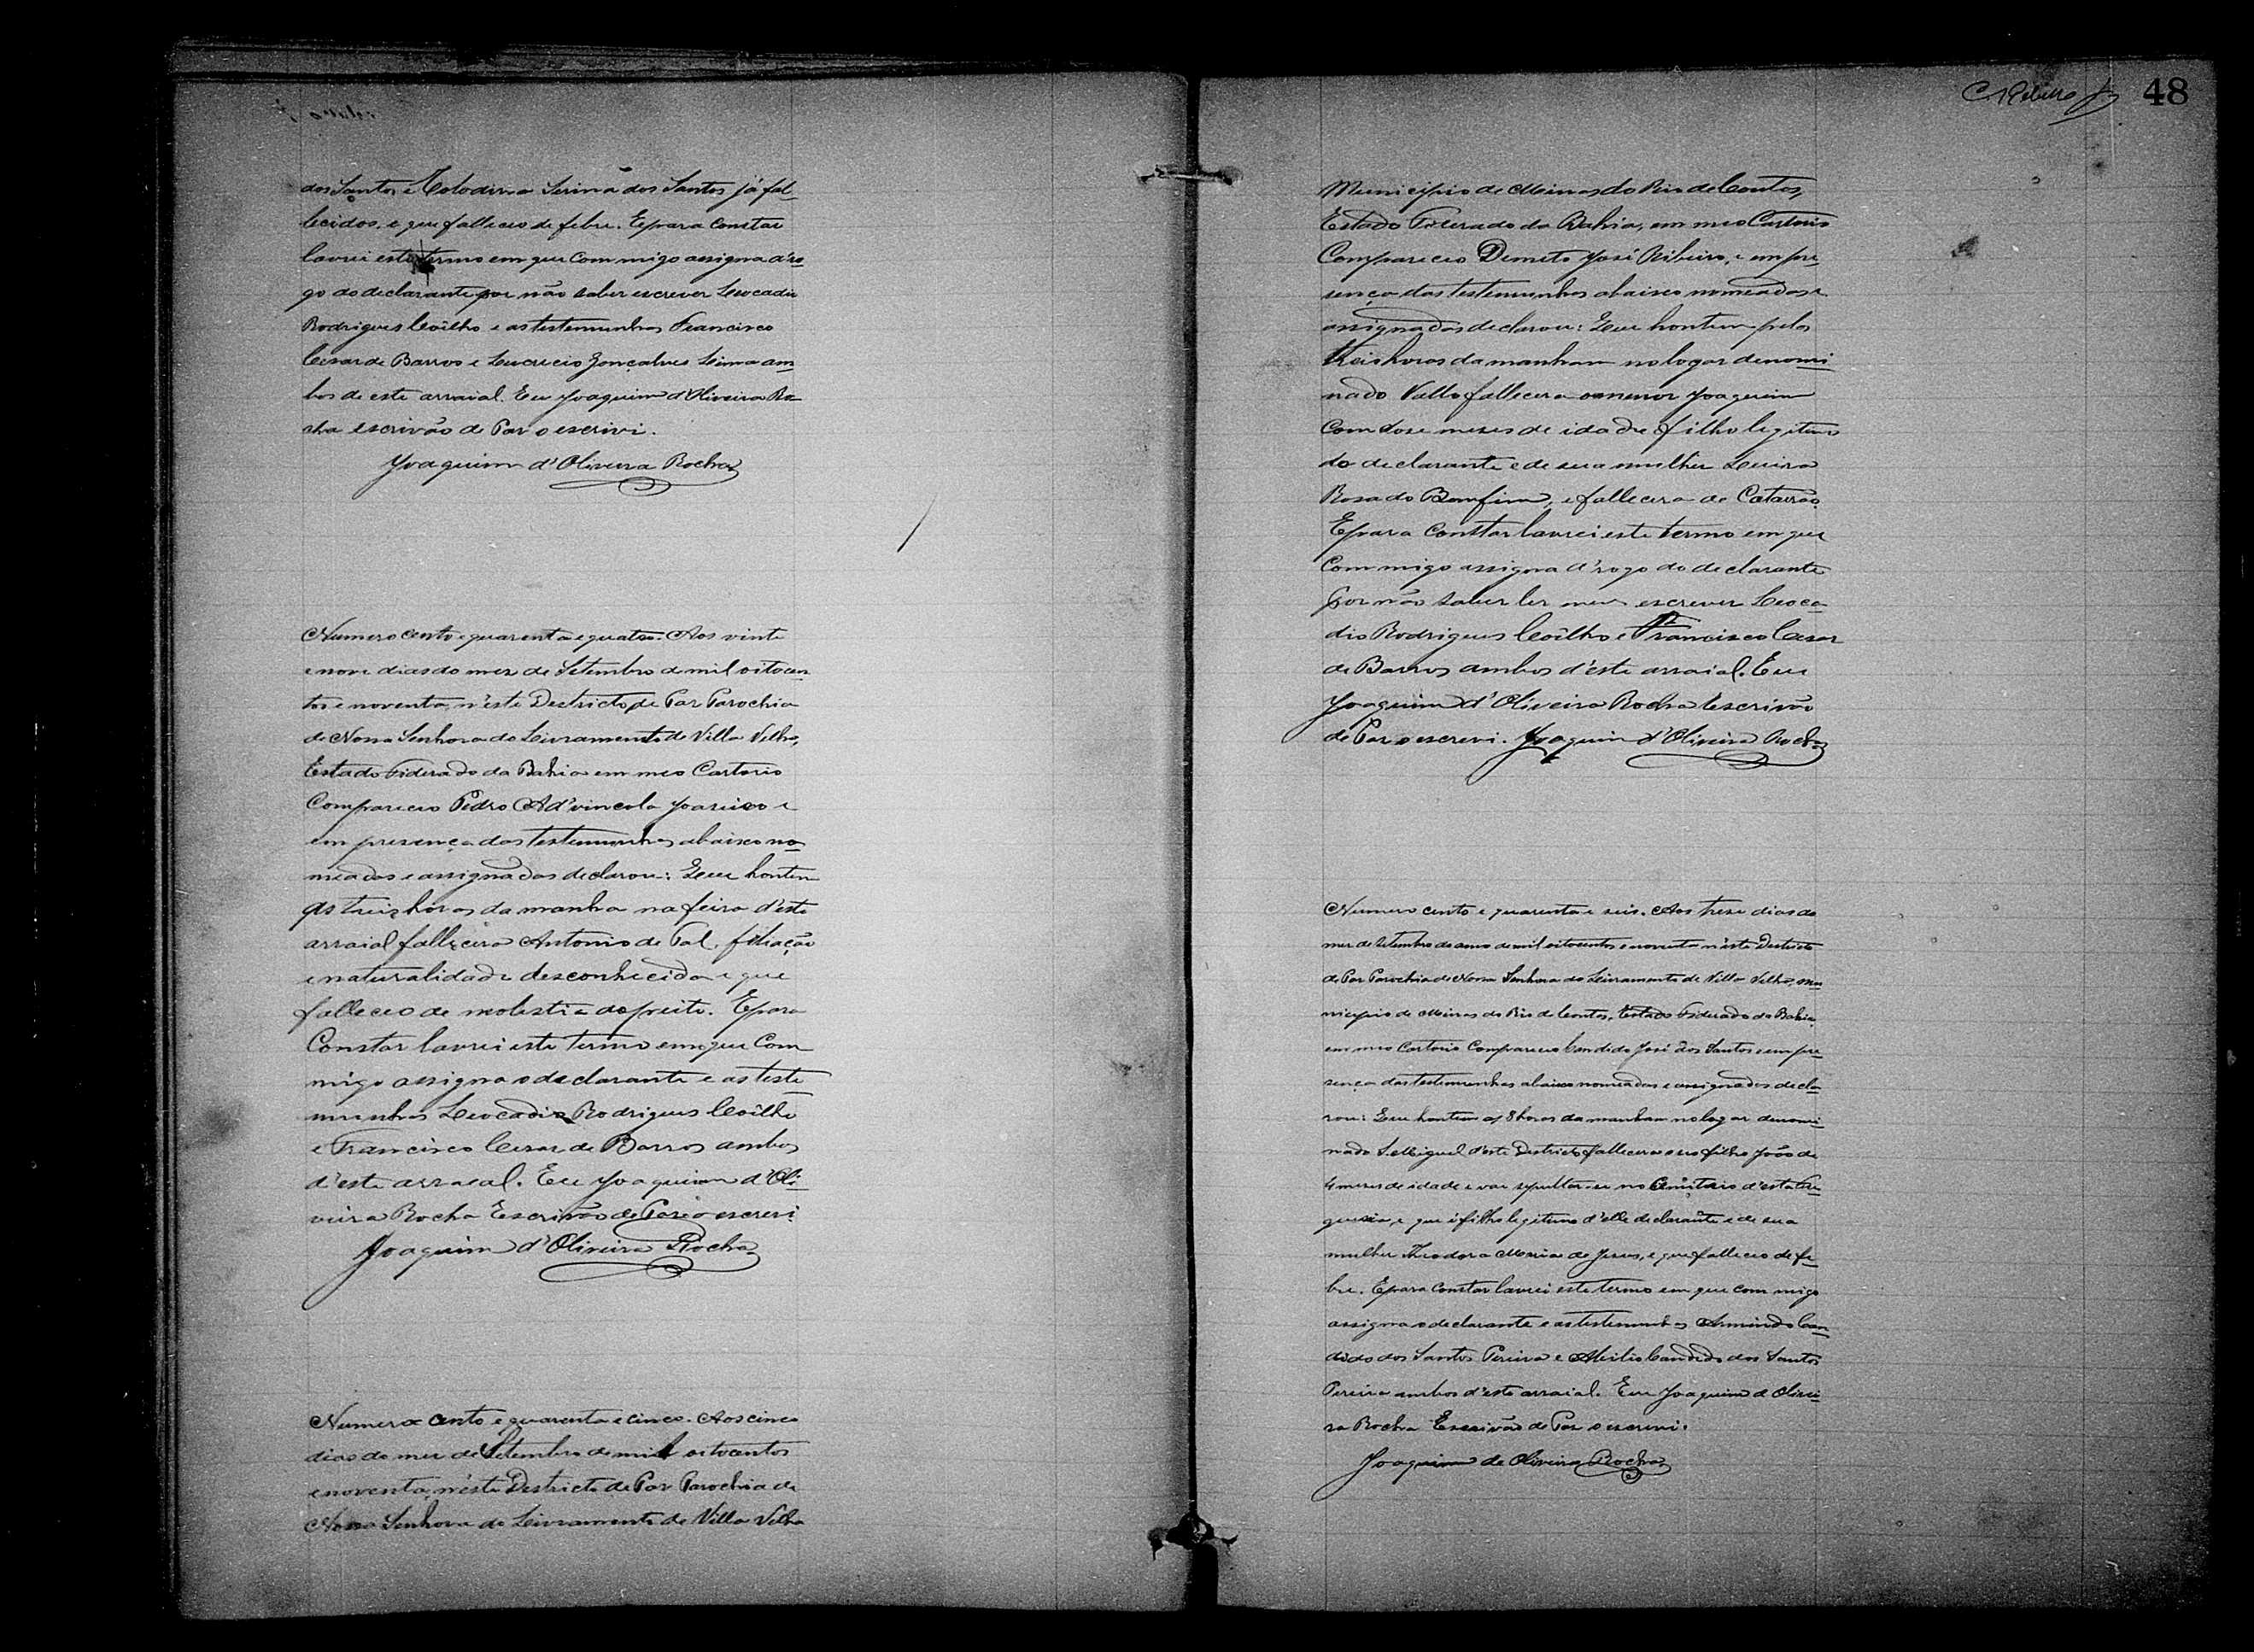 dos Santos e Colodina Serina dos Santos já fal-
lecidos, e que falleceo de febre. E para constar
lavrei este termo em que com migo assigna a ro-
go do declarante por não saber escrever Leocadio
Rodrigues Coêlho e as testemunhas Francisco
Cesar de Barros e Lucrecio Gonçalves Lima am-
bos de este arraial. Eu Joaquim d'Oliveira Ro-
cha escrivão de Paz o escrivi.
Joaquim d'Oliveira Rocha
Numero cento e quarenta e quatro. Aos vinte
e nove dias do mez de Setembro de mil oitocen
tos e noventa, n'este Destricto de Paz Parochia
de Nossa Senhora do Livramento de Villa Velha,
Estado Federado da Bahia em meo Cartorio
Compareceo Pedro Ad'vincola e
em presença das testemunhas abaixo no-
meadas e assignadas declarou: Que hontem
as treis horas da manha na feira d'este
arraial fallecera Antonio de Tal, filiação
e naturalidade desconhecida e que
falleceo de molestia do peito. E para
Constar lavrei este termo em que com
migo assigna o declarante e as teste
munhas Leocadio Rodrigues Coêlho
e Francisco Cesar de Barros ambos
d'este arraial. Eu Joaquim d'Oli-
veira Rocha Escrivão de Paz o escrevi.
Joaquim d'Oliveira Rocha
Numero cento e quarenta e cinco. Aos cinco
dias do mez de Setembro de mil oitocentos
e noventa, n'este Destricto de Paz Parochia de
Nossa Senhora do Livramento de Villa Velha
C. Ribeiro 48
Municipio de Minas do Rio de Contas,
Estado Federado da Bahia, em meo Cartorio
Compareceo Demeto José Ribeiro, e em pre-
sença das testemunhas abaixo nomeadas e
assignadas declarou: Que hontem pelas
treis horas da manham no logar denomi-
nado Vallo fallecera o menor Joaquim
com dose mezes de idade filho legitimo
do declarante e de sua mulher
Rosa do Bomfim, e fallecera de Catarrão.
E para constar lavrei este termo em que
Com migo assigna a rogo do declarante
por não saber ler nem escrever Leoca-
dio Rodrigues Coêlho e Francisco Cesar
de Barros ambos d'este arraial. Eu
Joaquim d'Oliveira Rocha Escrivão
de Paz o escrevi. Joaquim d'Oliveira Rocha
Numero cento e quarenta e seis. Aos trese dias do
mez de Setembro do anno de mil oitocentos e noventa n'este Destricto
de Paz Parochia de Nossa Senhora do Livramento de Villa Velha, mu-
nicipio de Minas do Rio de Contas, Estado Federado da Bahia,
em meo Cartorio Compareceo Candido José dos Santos e em pre-
sença das testemunhas abaixo nomeadas e assignadas decla-
rou: Que hontem as 8 horas da manham no logar denomi-
nado S. Miguel d'este Destricto falleceo seo filho João de
4 mezes de idade e vae sepultar-se no Cemiterio d'esta Fre-
guesia, e que é filho legitimo d'elle declarante e de sua
mulher Theodora Maria de Jesus, e que falleceo de fe-
bre. E para constar lavrei este termo em que com migo
assigna o declarante e as testemunhas Armindo Can-
dido dos Santos Pereira e Abilio Candido dos Santos
Pereira ambos d'este arraial. Eu Joaquim de Olivei-
ra Rocha Escrivão de Paz o escrevi.
Joaquim de Oliveira Rocha